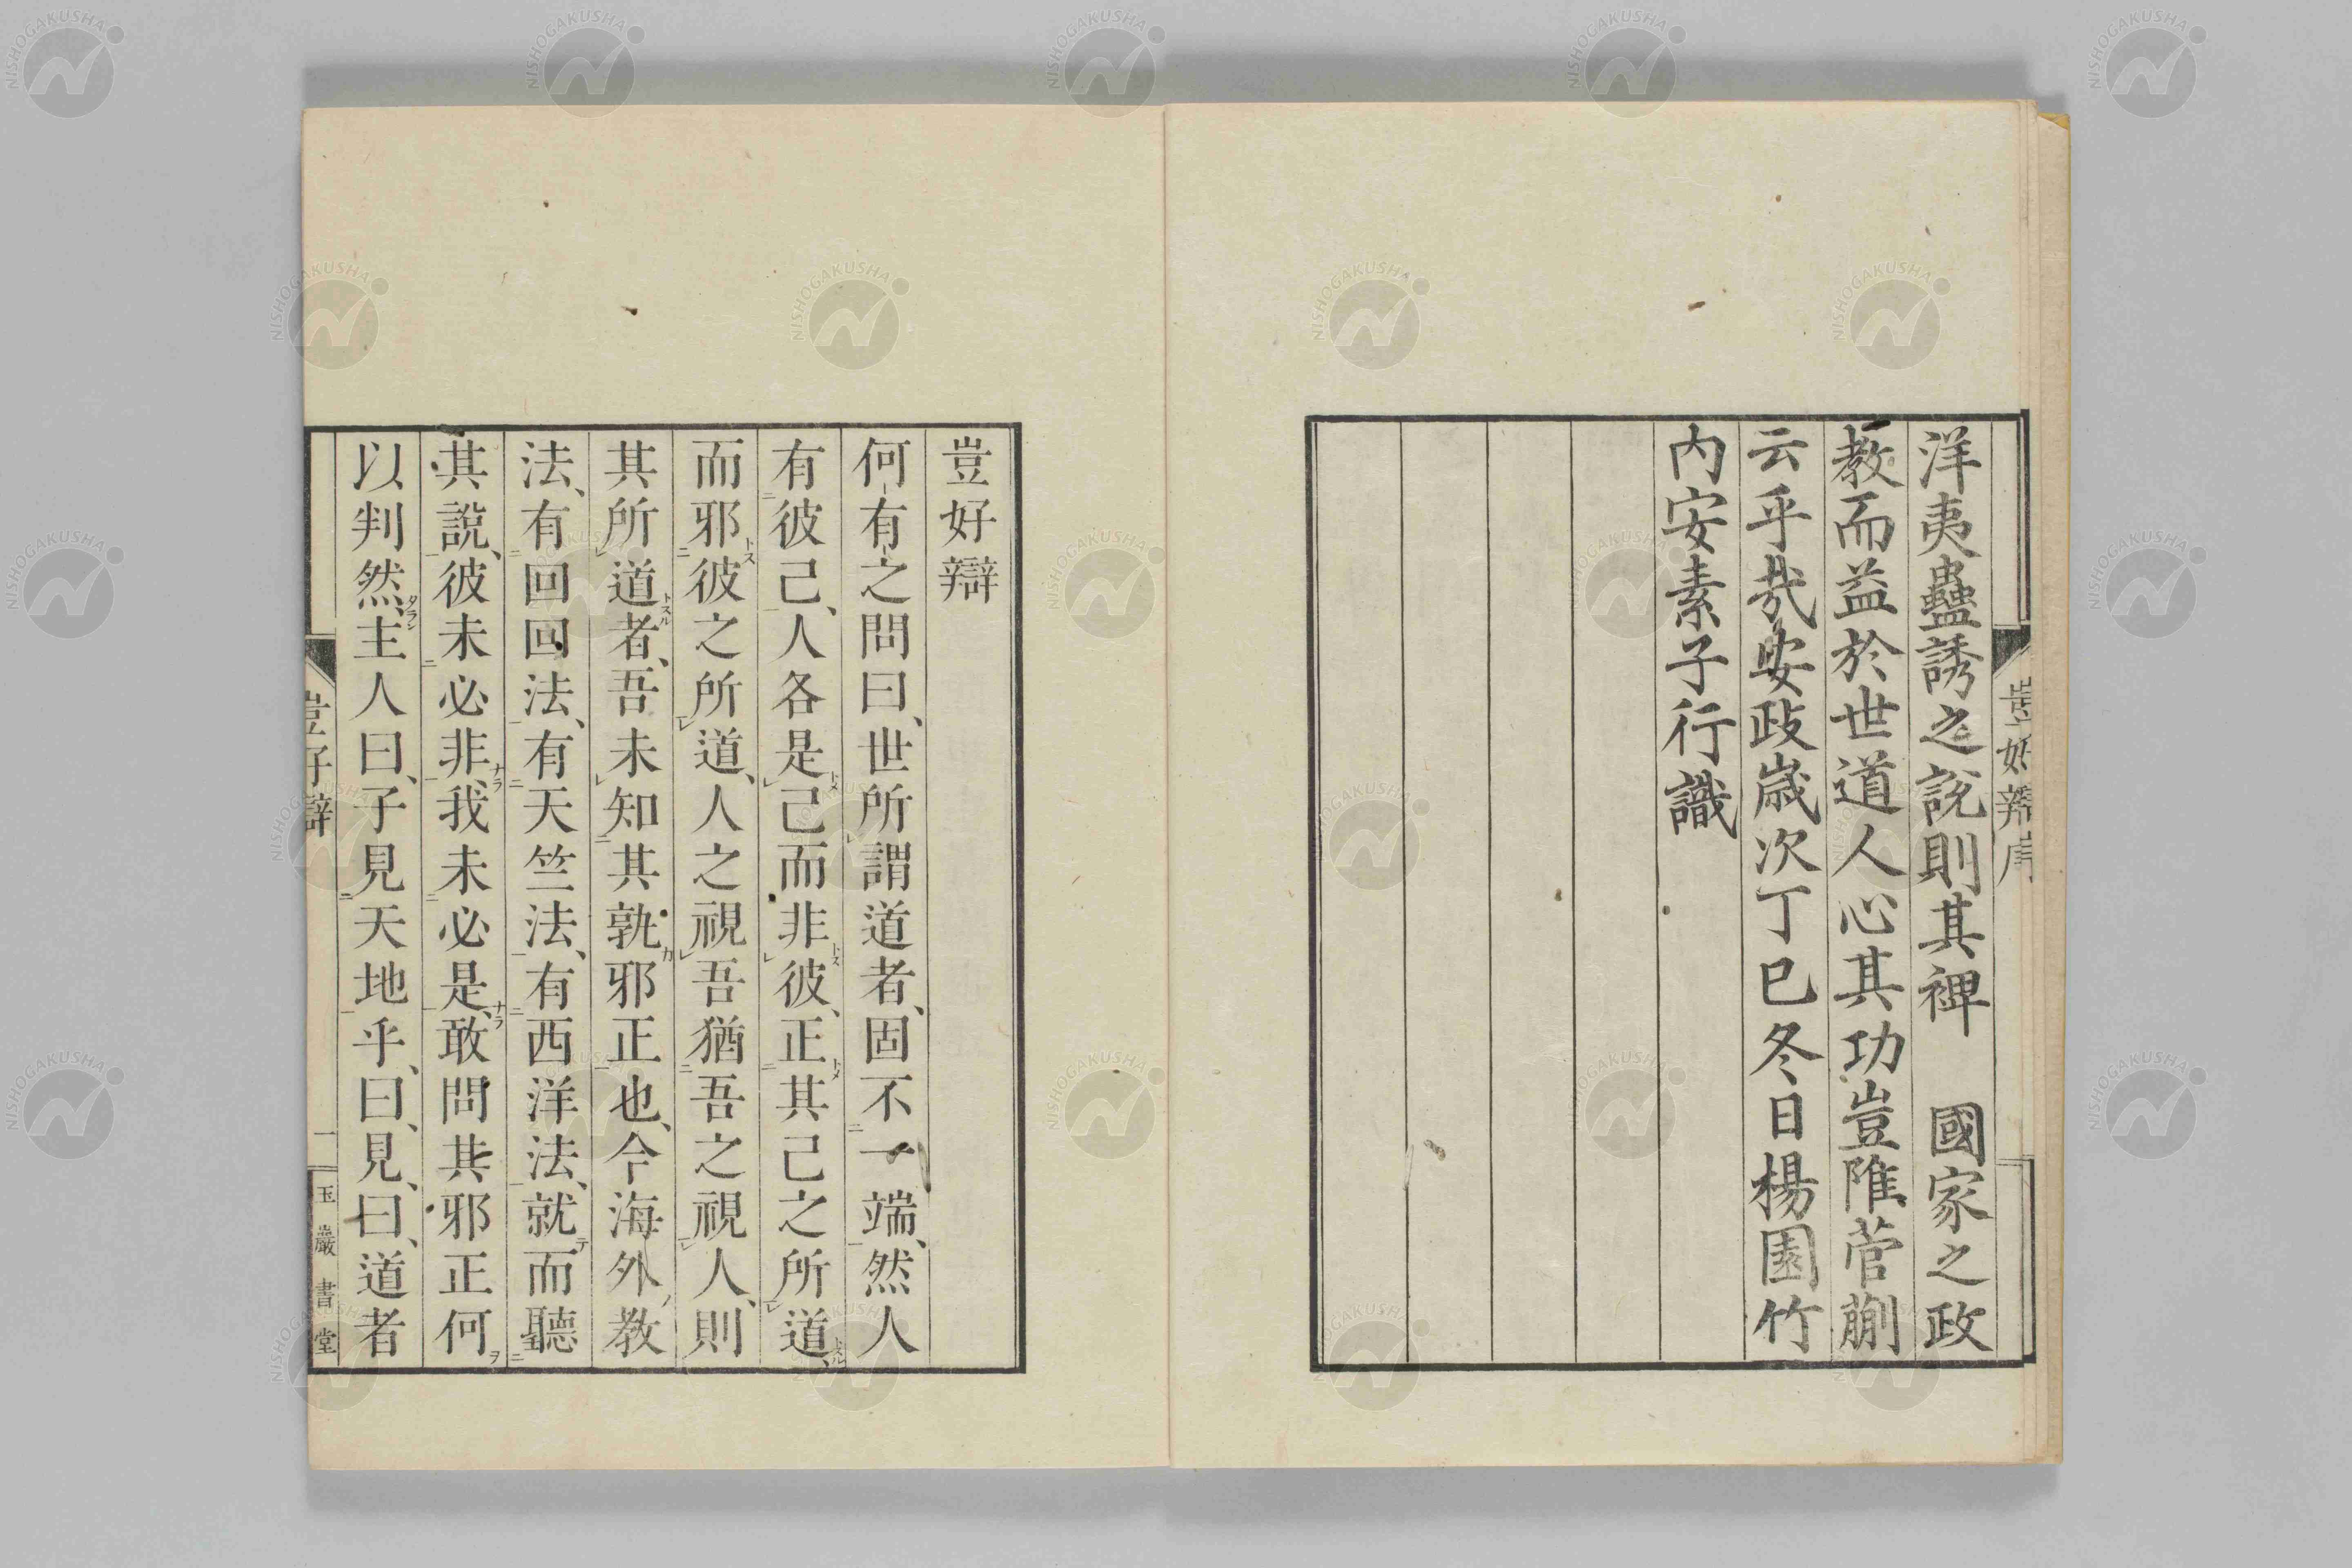 洋夷蠱誘之說則其裨　國家之政
教而益於世道人心其功豈隹菅蒯
云乎哉安政歲次丁巳冬日楊園竹
内安素子行識
豈好辯序
豈好辯
何有之問曰、世所謂道者、固不一端、然人
有彼己、人各是己而非彼、正其己之所道、
而邪彼之所道、人之視吾猶吾之視人、則
其所道者、吾未知其孰邪正也、今海外教
法、有回回法、有天竺法、有西洋法、就而聽
其說、彼未必非、我未必是、敢問其邪正何
以判然、主人曰、子見天地乎、曰、見、曰、道者
豈好辯
一
玉巖書堂
NISHOGAKUSHA